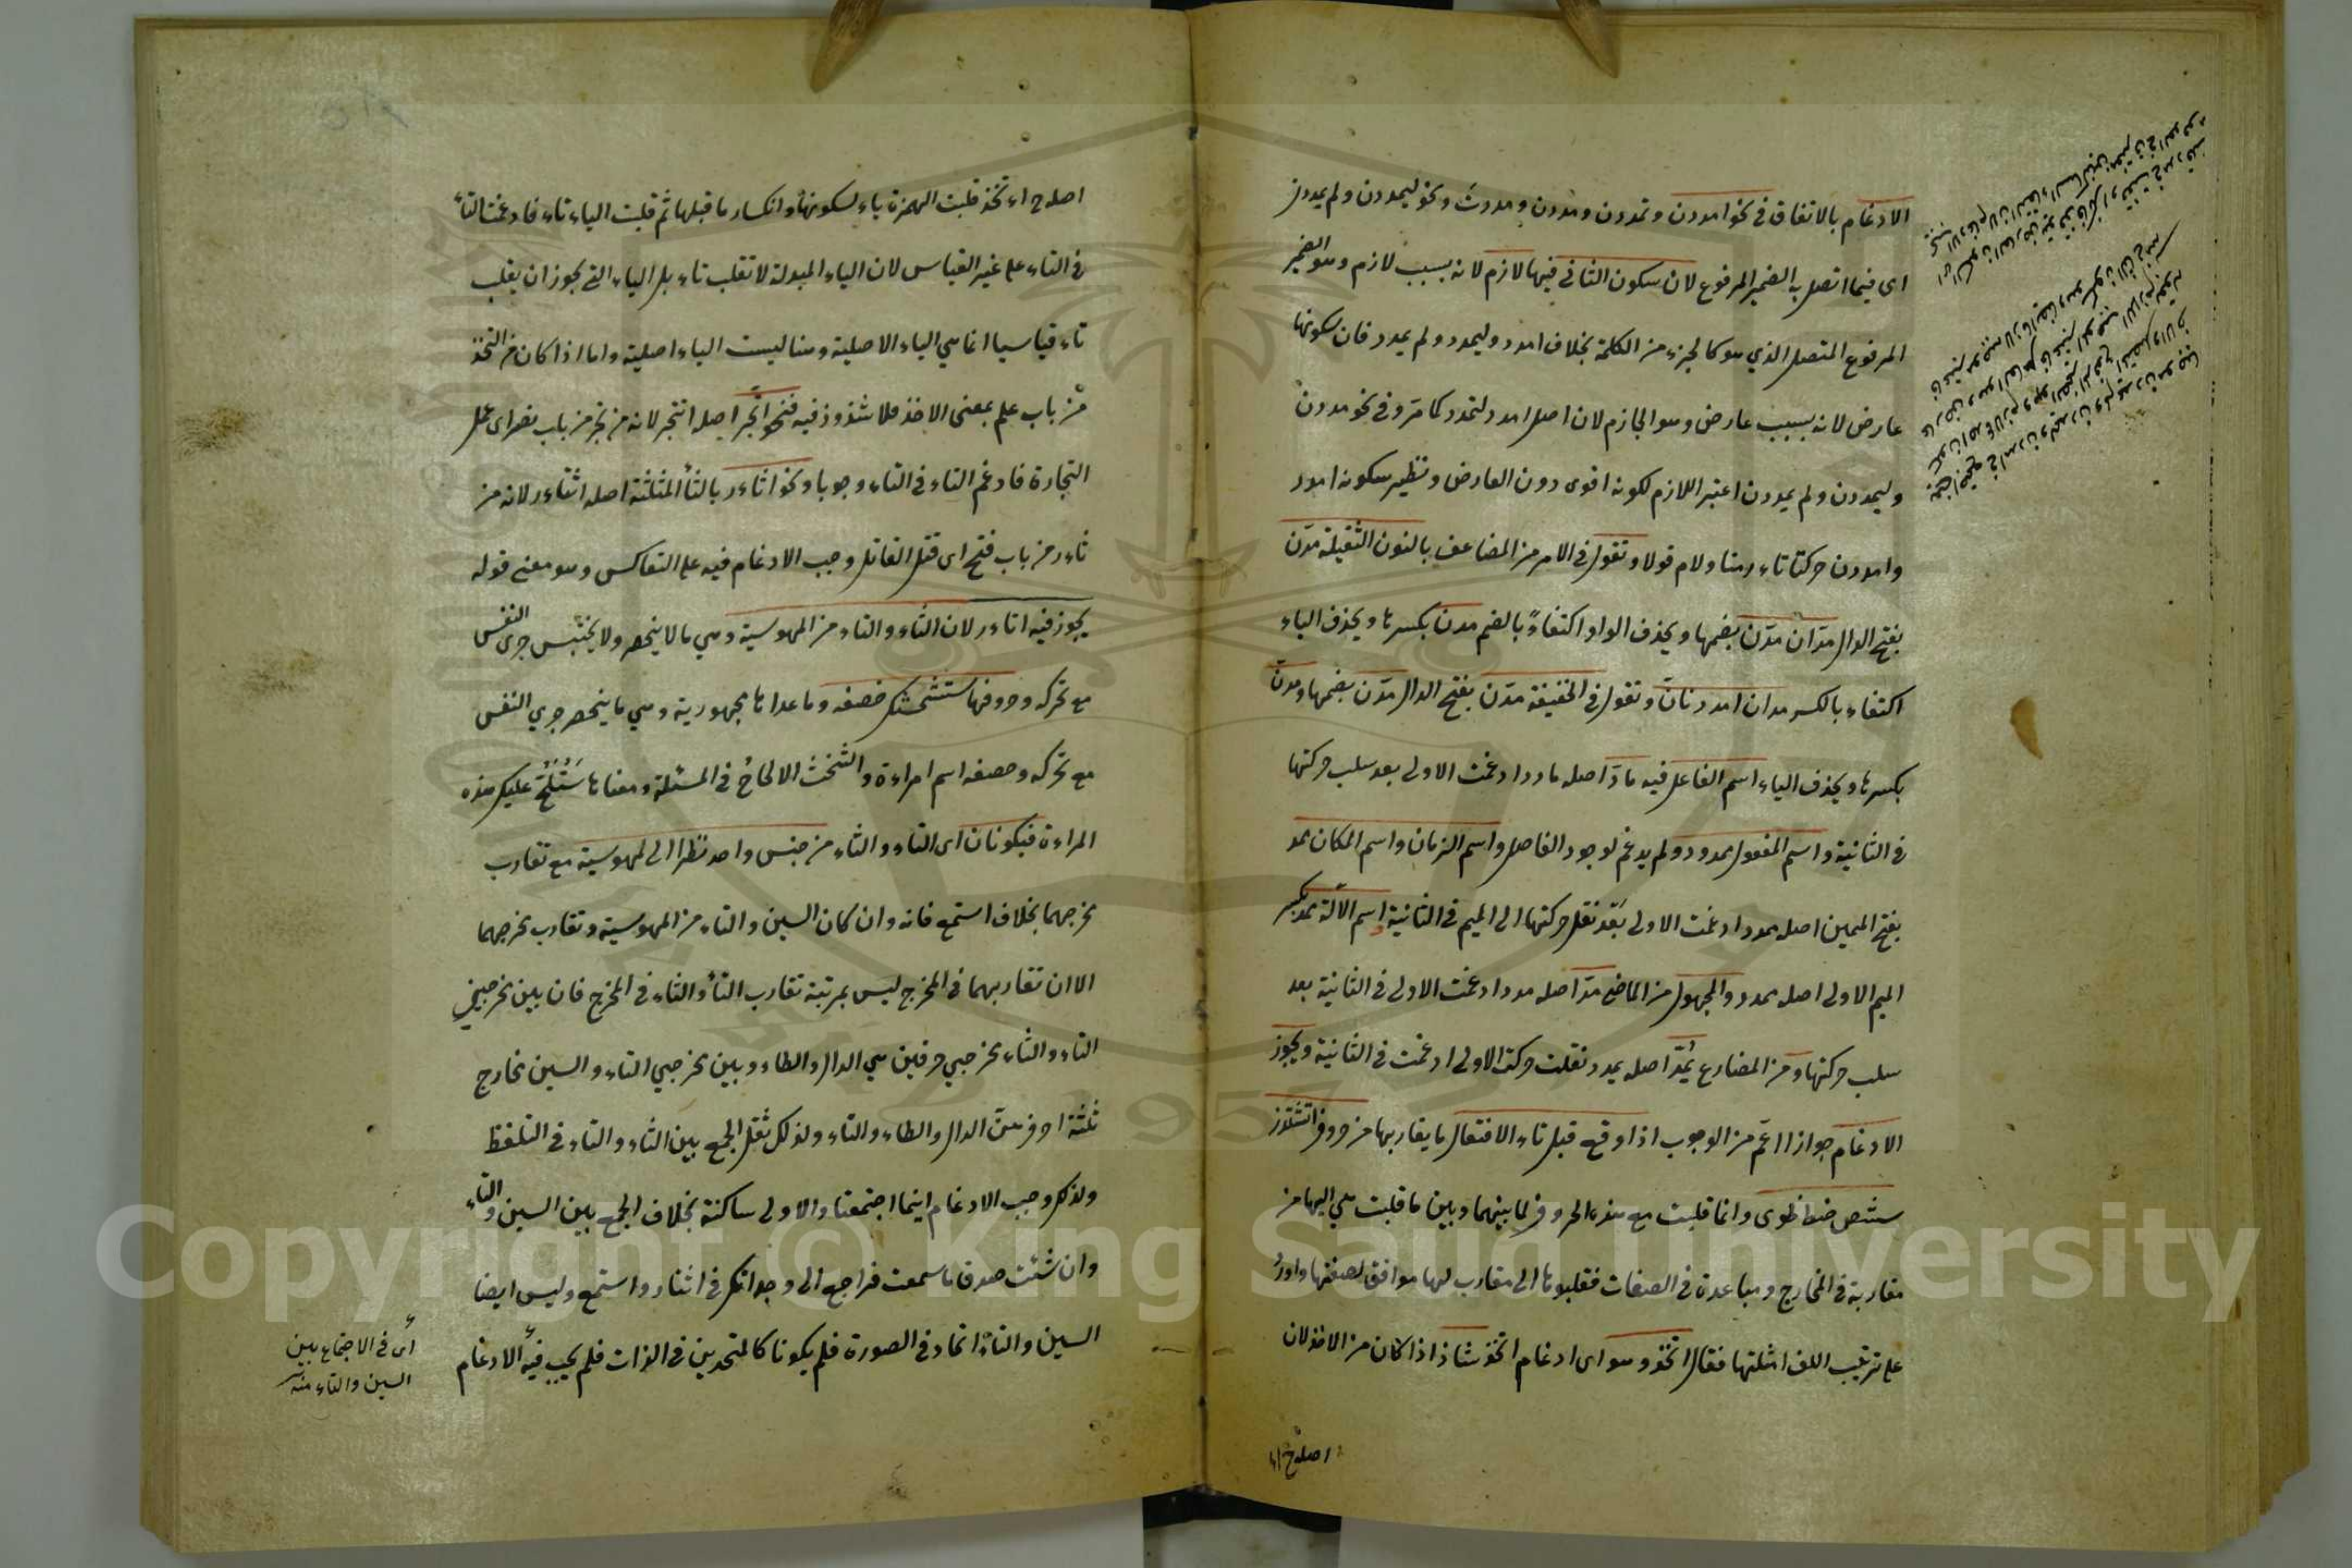 الادغام بالاتفاق في نحو امددن وتمددن ومددن ومددت ونحو ليمددن ولم يمددن
اى فيما اتصل به الضمير المرفوع لان سكون الثاني فيها لازم لانه بسبب لازم وهو الضمير
المرفوع المتصل الذي هو كالجزء من الكلمة بخلاف امدد وليمدد ولم يمدد فان سكونها
عارض لانه بسبب عارض وهو الجازم لان اصل امدد لتمدد كما مر وفي نحو مددن
وليمددن ولم يمددن اعتبر اللازم لكونه اقوى دون العارض ونظير سكونه امدد
وامددن حركتا تاء رمتا ولام قولا وتقول في الامر من المضاعف بالنون الثقيلة مدّن
بفتح الدال مدّان مدّن بضمها ويحذف الواو اكتفاءً بالضم مدن بكسرها ويحذف الياء
اكتفاء بالكسر مدان امددنانّ وتقول في الخفيفة مدّن بفتح الدال مدّن بضمها ومدن
بكسرها ويحذف الياء اسم الفاعل فيه مادّ اصله مادد ادغمت الاولى بعد سلب حركتها
في الثانية واسم المفعول ممدود ولم يدغم لوجود الفاصل واسم الزمان واسم المكان ممد
بفتح الميمين اصله ممدد ادغمت الاولى بعد نقل حركتها الى الميم في الثانية اسم الآلة ممد بكسر
الميم الاولى اصله ممدد والمجهول من الماضي مدّ اصله مدد ادغمت الاولى في الثانية بعد
سلب حركتها ومن المضارع يُمَدّ اصله يمدد نقلت حركة الاولى ادغمت في الثانية ويجوز
الادغام جوازا اعم من الوجوب اذا وقع قبل تاء الافتعال ما يقاربها من حروف اتثدذز
سشص ضطظوى وانما قلبت مع هذه الحروف لما بينهما وبين ما قلبت هي اليها من
مقاربة في المخارج ومباعدة في الصفات فقلبوها الى مقارب لها موافق لصفتها واورد
على ترتيب اللف امثلتها فقال اتخذ وهو اى ادغام اتخذ شاذ اذا كان من الاخذ لان
اصله
اصله اءتخذ قلبت الهمزة ياء لسكونها وانكسار ما قبلها ثم قلبت الياء تاء فادغمت التاء
في التاء على غير القياس لان الياء المبدلة لا تقلب تاء بل الياء التي يجوز ان يقلب
تاء قياسيا انما هي الياء الاصلية وهنا ليست الياء اصلية واما اذا كان من التخذ
من باب علم بمعنى الاخذ فلا شذوذ فيه فنحو اتّجر اصله اتتجر لانه من تجر من باب نصر اى عمل
التجارة فادغم التاء في التاء وجوبا ونحو اثاءر بالثاء المثلثة اصله اثتاءر لانه من
ثاءر من باب فتح اى قتل القاتل وجب الادغام فيه على التعاكس وهو معنى قوله
يجوز فيه اتاءر لان الثاء والتاء من المهموسية وهي ما لا ينحصر ولا يحتبس جرى النفس
مع تحركه وحروفها ستشحثك خصفه وما عداها مجهورية وهي ما ينحصر جري النفس
مع تحركه وخصفه اسم امراءة والشحث الالحاح في المسئلة ومعناها ستلح عليك هذه
المراءة فيكونان اى التاء والثاء من جنس واحد نظرا الى المهموسية مع تقارب
مخرجهما بخلاف استمع فانه وان كان السين والتاء من المهموسية وتقارب مخرجهما
الا ان تقاربهما في المخرج ليس بمرتبة تقارب التاء والثاء في المخرج فان بين مخرجي
التاء والثاء مخرجي حرفين هي الدال والطاء وبين مخرجي التاء والسين مخارج
ثلثة احرف الدال والطاء والثاء ولذلك ثقل الجمع بين الثاء والتاء في التلفظ
ولذلك وجب الادغام اينما اجتمعتا والاولى ساكنة بخلاف الجمع بين السين والتاء
وان شئت صدق ما سمعت فراجع الى وجدانك في اثتار واستمع وليس ايضا
السين والتاء اتحاد في الصورة فلم يكونا كالمتحدين في الذات فلم يجب فيه الادغام
اى في الاجتماع بين
السين والتاء منه
Copyright © King Saud University